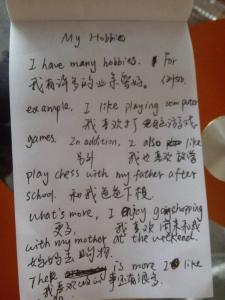 My Hobbies
I have many hobbies. For
我有许多的业余爱好。
example, I like playing computer
我喜欢打电脑游戏
games. In addition, I also like
另外 我也喜欢放学
play chess with my father after
school. 和我爸爸下棋
what's more, I enjoy go shopping
更多, 我喜欢周末和我
with my mother at the weekend.
妈妈去购物.
There is more I like
我喜欢的事还有很多.